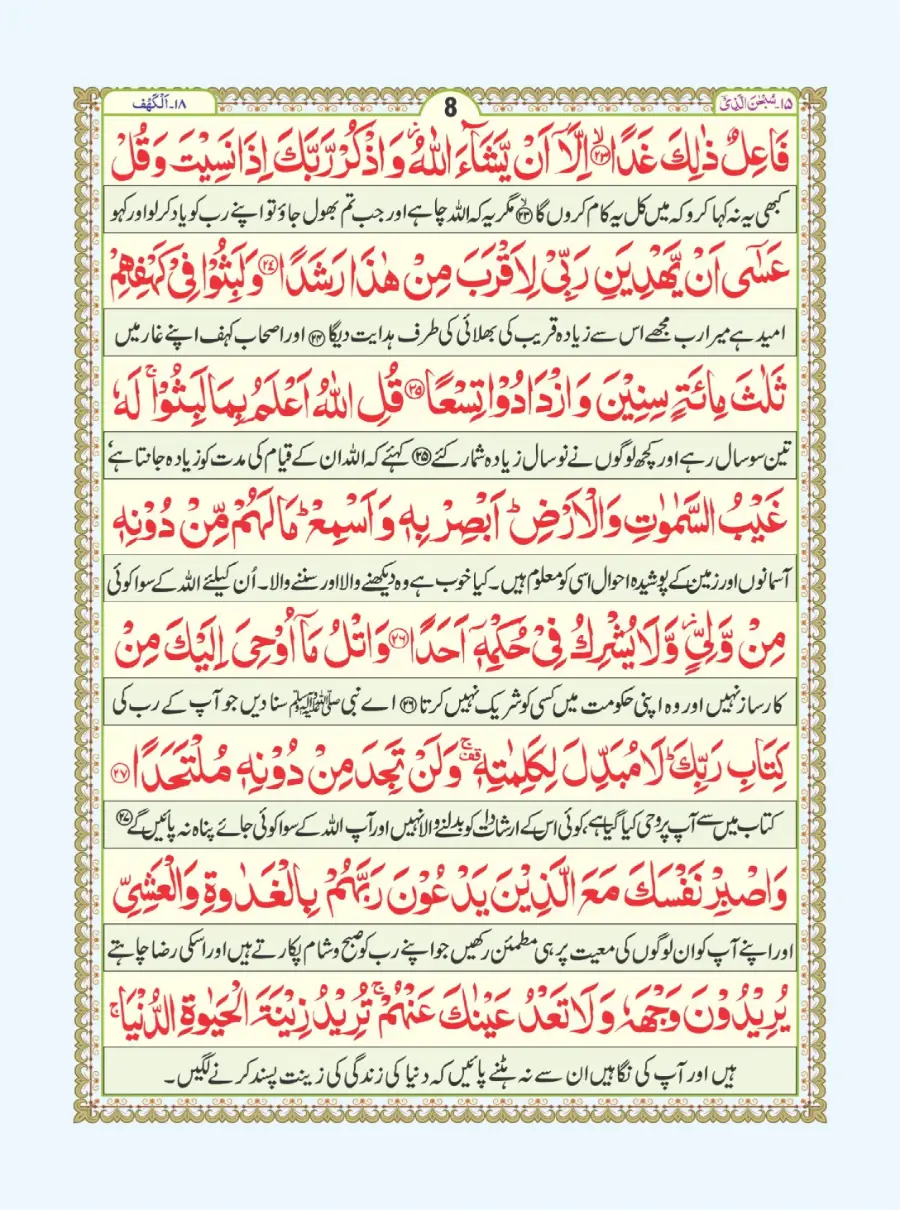 ١٥۔ سُبْحٰنَ الَّذِیْ
8
١٨۔ اَلْكَهْف
فَاعِلٌ ذٰلِكَ غَدًا ﴿٢٣﴾ اِلَّاۤ اَنْ يَّشَآءَ اللّٰهُ ؗ وَاذْكُرْ رَّبَّكَ اِذَا نَسِيْتَ وَقُلْ
کبھی یہ نہ کہا کرو کہ میں کل یہ کام کروں گا ﴿۲۳﴾ مگر یہ کہ اللہ چاہے اور جب تم بھول جاؤ تو اپنے رب کو یاد کر لو اور کہو
عَسٰۤى اَنْ يَّهْدِيَنِ رَبِّيْ لِاَقْرَبَ مِنْ هٰذَا رَشَدًا ﴿٢٤﴾ وَلَبِثُوْا فِيْ كَهْفِهِمْ
امید ہے میرا رب مجھے اس سے زیادہ قریب کی بھلائی کی طرف ہدایت دیگا ﴿۲۴﴾ اور اصحاب کہف اپنے غار میں
ثَلٰثَ مِائَةٍ سِنِيْنَ وَازْدَادُوْا تِسْعًا ﴿٢٥﴾ قُلِ اللّٰهُ اَعْلَمُ بِمَا لَبِثُوْا ۚ لَهٗ
تین سو سال رہے اور کچھ لوگوں نے نو سال زیادہ شمار کئے ﴿۲۵﴾ کہئے کہ اللہ ان کے قیام کی مدت کو زیادہ جانتا ہے‘
غَيْبُ السَّمٰوٰتِ وَالْاَرْضِ ؕ اَبْصِرْ بِهٖ وَاَسْمِعْ ؕ مَا لَهُمْ مِّنْ دُوْنِهٖ
آسمانوں اور زمین کے پوشیدہ احوال اسی کو معلوم ہیں۔ کیا خوب ہے وہ دیکھنے والا اور سننے والا۔ اُن کیلئے اللہ کے سوا کوئی
مِنْ وَّلِيٍّ ؗ وَّلَا يُشْرِكُ فِيْ حُكْمِهٖۤ اَحَدًا ﴿٢٦﴾ وَاتْلُ مَاۤ اُوْحِيَ اِلَيْكَ مِنْ
کارساز نہیں اور وہ اپنی حکومت میں کسی کو شریک نہیں کرتا ﴿۲۶﴾ اے نبی ﷺ سنا دیں جو آپ کے رب کی
كِتَابِ رَبِّكَ ؕ لَا مُبَدِّلَ لِكَلِمٰتِهٖ ۚ قف وَلَنْ تَجِدَ مِنْ دُوْنِهٖ مُلْتَحَدًا ﴿٢٧﴾
کتاب میں سے آپ پر وحی کیا گیا ہے، کوئی اس کے ارشادات کو بدلنے والا نہیں اور آپ اللہ کے سوا کوئی جائے پناہ نہ پائیں گے ﴿۲۷﴾
وَاصْبِرْ نَفْسَكَ مَعَ الَّذِيْنَ يَدْعُوْنَ رَبَّهُمْ بِالْغَدٰوةِ وَالْعَشِيِّ
اور اپنے آپ کو ان لوگوں کی معیت پر ہی مطمئن رکھیں جو اپنے رب کو صبح و شام پکارتے ہیں اور اسکی رضا چاہتے
يُرِيْدُوْنَ وَجْهَهٗ وَلَا تَعْدُ عَيْنٰكَ عَنْهُمْ ۚ تُرِيْدُ زِيْنَةَ الْحَيٰوةِ الدُّنْيَا ۚ
ہیں اور آپ کی نگاہیں ان سے نہ ہٹنے پائیں کہ دنیا کی زندگی کی زینت پسند کرنے لگیں۔